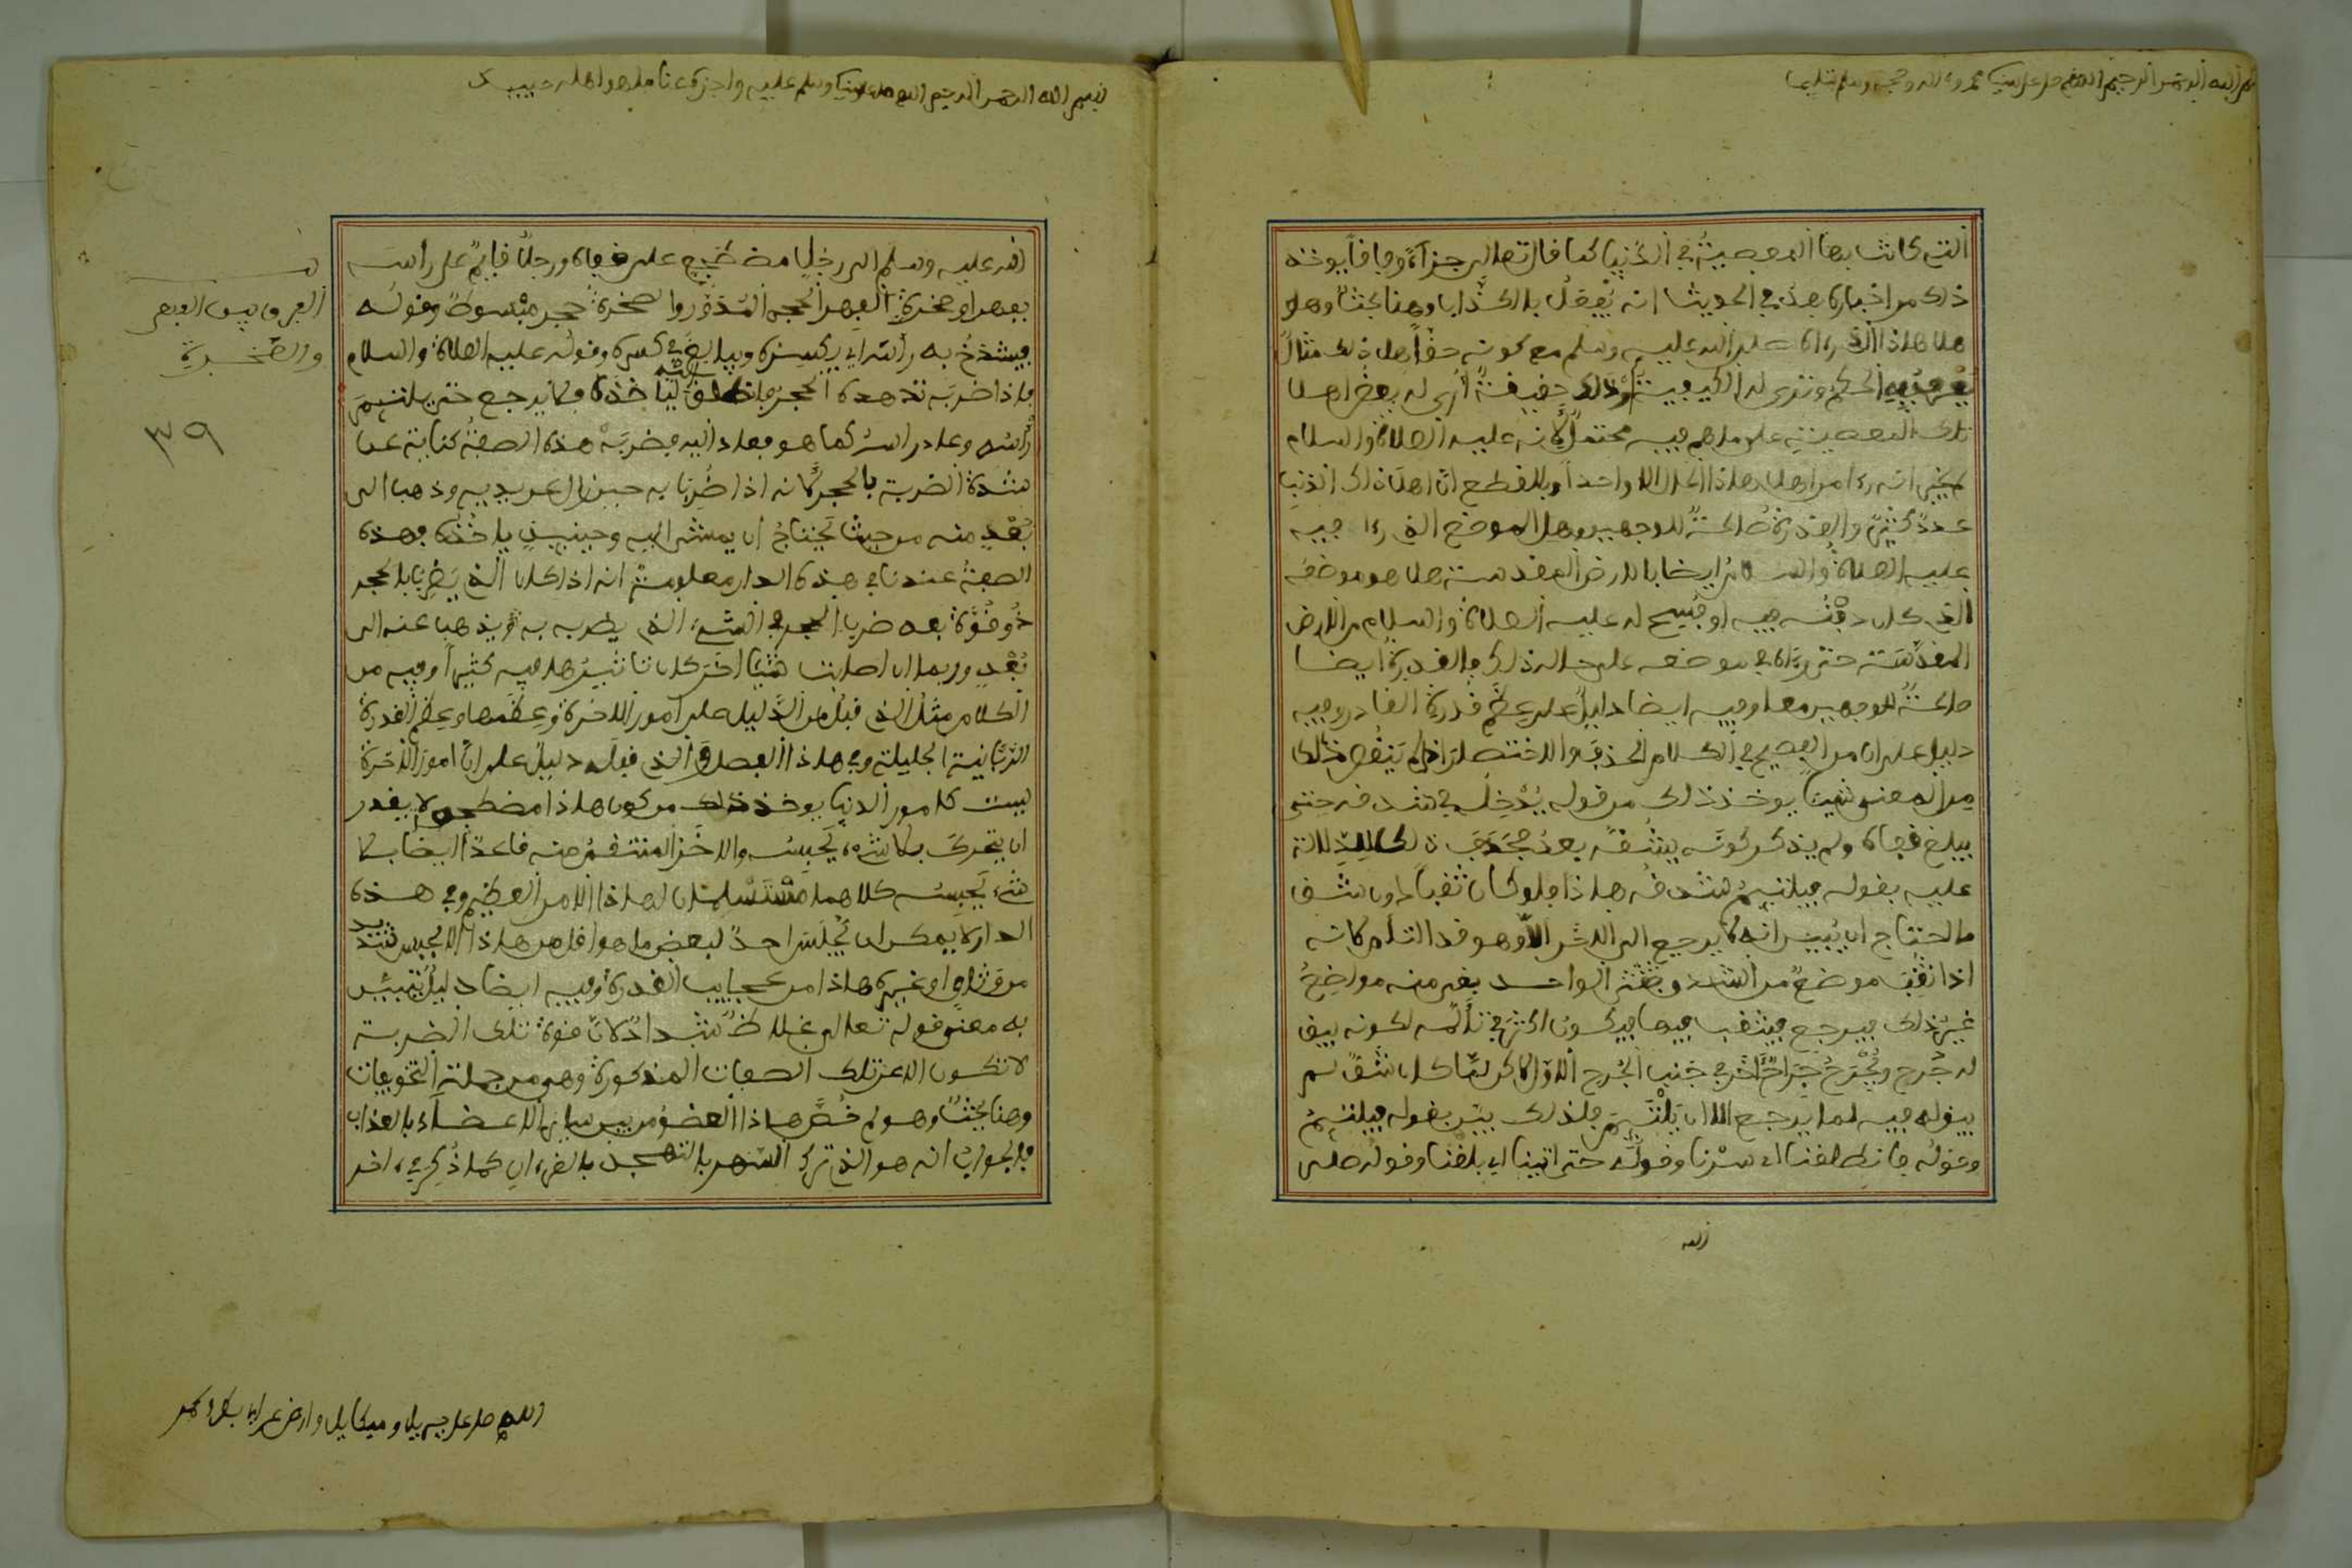 بسم الله الرحمن الرحيم اللهم صل على سيدنا محمد وءاله وصحبه وسلم تسليما
التي كانت بها المعصية في الدنيا كما قال تعالى جزآءً وفاقاً يوخذ
ذلك من اخباره بعدُ في الحديث انه يُفعلُ بالكذّاب وهنا بحثٌ وهو
هل هاذا الذي رءاه صلى الله عليه وسلم مع كونه حقاً هل ذلك مثالٌ
الحكم وترى له الكيفية وذلك حقيقةً أُرِي له بعضُ اهل
تلك المعصية على ما هم فيه محتملٌ لأنه عليه الصلاة والسلام
لم يخبر انه رءا من اهل هاذا الحال الا واحداً وبالقطع انّ اهل ذلك الذنب
عددٌ كثيرٌ والقدرة صالحةٌ للوجهين وهل الموضع الذي رءا فيه
عليه الصلاة والسلام ايضا بالارض المقدسة هل هو موضعه
الذي كان دفنُه فيه او فُسِح له عليه الصلاة والسلام من الارض
المقدّسة حتى رءاه في موضعه على حاله ذلك فالقدرة ايضا
صالحةٌ للوجهين معا وفيه ايضا دليلٌ على عِظَم قدرة القادر وفيه
دليل على ان من الفصيح في الكلام الحذفَ والاختصارَ اذا لم يَنقُص ذلك
مِن المعنى شيئا يوخذ ذلك من قوله يُدْخِلُه في شدقه حتى
يبلغ قفاه ولم يذكر كونَه يشُقُّه بعدُ فحَذَفَ ذلك للدلالة
عليه بقوله فيلتئمُ شدقُه هاذا فلو كان ثقباً دون شق
ما احتاج ان يُبيّن انه لا يرجع الى الاخر الاّ وهو قد التأم لانه
اذا ثُقِبَ موضعٌ من الشدق الواحد بقي منه مواضِعُ
غيرُ ذلك فيرجع فيثقب فيها فيكون اكثرَ في تألّمه لكونه يبقى
له جُرح ويُجْرَحُ جَراحٌ ءاخَر في جَنب الجُرح الاوّل لاكن لمّا كان شقٌّ لم
يبق له فيه لما يرجع الا ان يَلْتَئِمَ فلذلك بيّن بقوله فيلتئِمُ
وقولُه فانطلقنا اي سِرْنا وقولُه حتى اتينا اي بلغنا وقولُه صلى
الله
بسم الله الرحمن الرحيم اللهم صل على سيدنا وسلم عليه واجزه عنا ما هو اهله حبيبك
الله عليه وسلم الى رجلٍ مضطجع على قفاه ورجلٌ قايمٌ على رأسه
بفهر او صخرة الفهر الحجر المُدَوَّر والصخرة حجر مبْسوطٌ وقولُه
فيشدَخُ به رأسَه اي يكسِرُه ويبالغ في كسره وقولُه عليه الصلاة والسلام
فاذا ضربَه تدهده الحجرُ فانطلق اليه ليأخذه فلا يرجع حتى يلتئم
رأسُه وعاد راسُه كما هو فعاد اليه فضربَهُ هذه الصفةُ كنايةٌ عن
شدة الضربة بالحجر لأنه اذا ضُرِب به حين زال عن يديه وذهب الى
بُعْدٍ منه من حيثُ يحتاجُ ان يمشي اليه وحينئِذٍ ياخُذُه فهذه
الصفةُ عندنا في هذه الدار معلومةٌ انه اذا كان الذي يَضْرِبُ بالحجر
ذُو قُوَّة بعد ضرب الحجر في الشيء الذي يضربه به ويذهب عنه الى
بُعْدٍ وربما ان اصابت شيئا ءاخَر كان تاثيرُها فيه كثيراً وفيه من
الكلام مثلُ الذي قبلُ من الدّليل على أمور الاخرة وعِظَمها وعِظَم القدرة
الرّبّانية الجليلة وفي هاذا الفصل والذي قبلَه دليلٌ على انّ امورَ الاخرة
ليست كامور الدنيا يوخذ ذلك من كون هاذا مضطجع لا يقدر
ان يتحرك بلا شيء يَحبِسُه والاخَر المنتقَمُ منه قاعدٌ ايضا بلا
شيء يَحبِسُه كلاهما مُسْتَسْلِمان لهاذا الامر العظيم وفي هذه
الدار لا يمكن ان يُجْلَسَ احدٌ لبعض ما هو اقل من هاذا الا بحبس شديد
من وَثاق او غيره هاذا من عجايب القدرة وفيه ايضا دليلٌ يتبيّن
به معنى قوله تعالى غلاظٌ شدادٌ لانّ قوة تلك الضربة
لا تكون الا عن تلك الصفات المذكورة وهو من جملة التخويفات
وهنا بحثٌ وهو لم خُصَّ هاذا العضوُ من بين ساير الاعضاء بالعذاب
فالجوابُ انه هو الذي ترك السّهر بالتهجد بالقرءان كما ذُكِر في ءاخر
الفرق بين الفهر
والصّخرة
٣٩
اللهم صل على جبريل وميكايل وارض عن ابي بكر وعمر